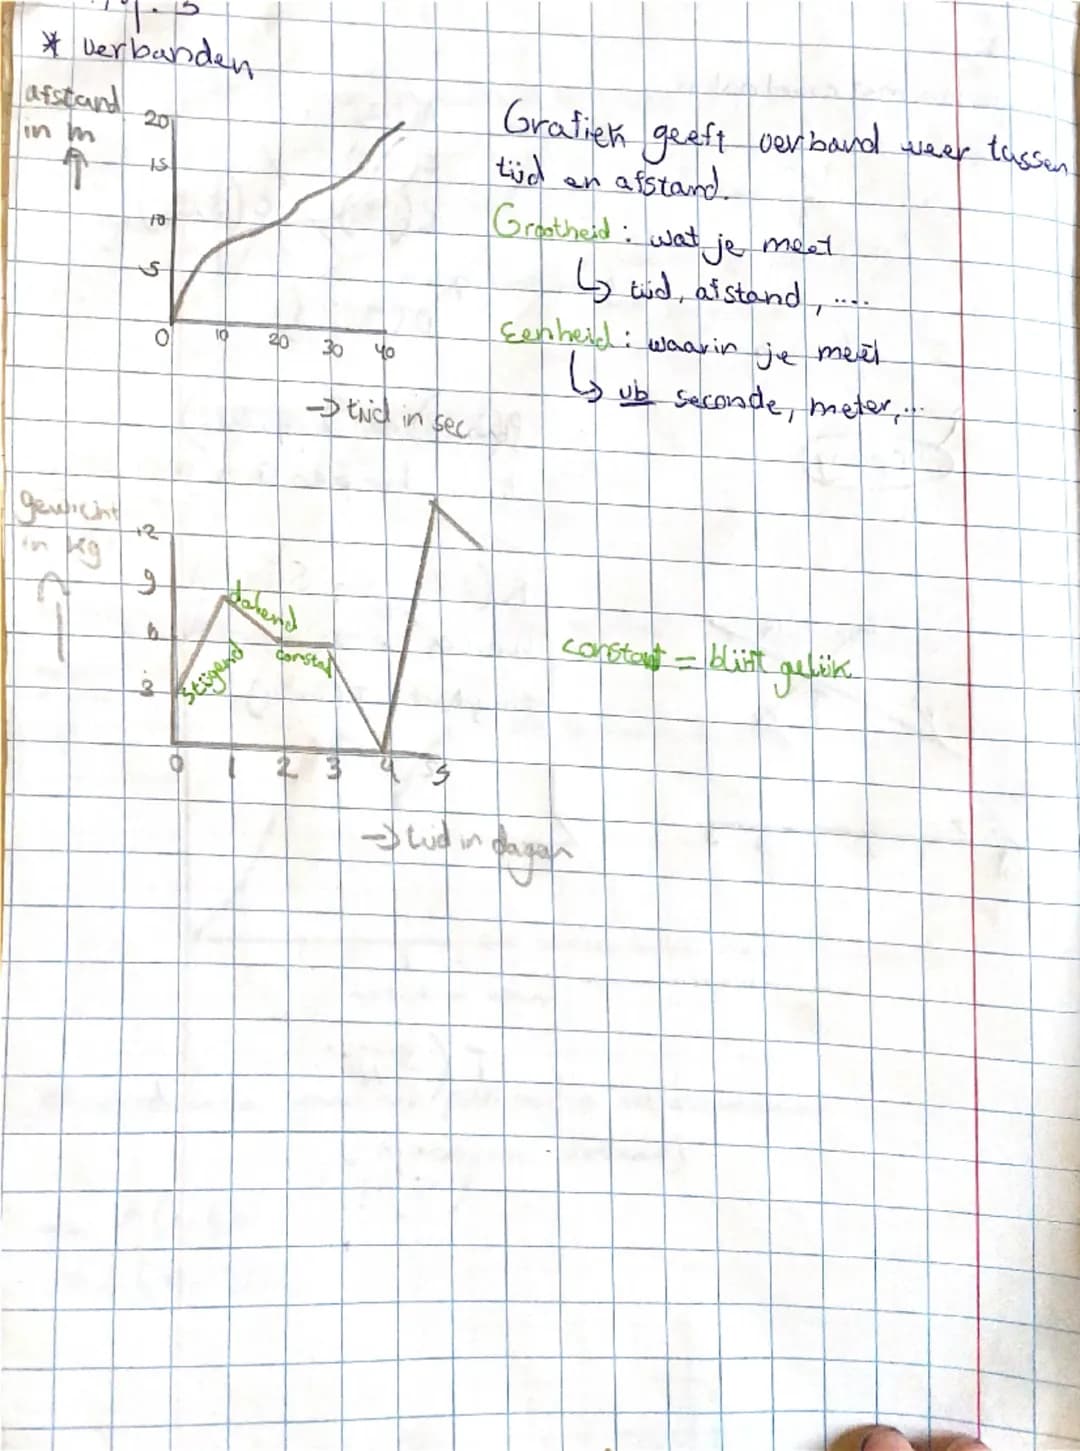 * verbanden
afstand
in m
20
15
10
5
0 10 20 30 40
→ tijd in sec
Grafiek geeft verband weer tussen
tijd en afstand.
Grootheid : wat je meet
↳ tijd, afstand, ....
Eenheid : waarin je meet
↳ vb seconde, meter, ...
gewicht
in kg
12
9
6
3
0 1 2 3 4 5
stijgend
dalend
constant
→ tijd in dagen
constant = blijft gelijk